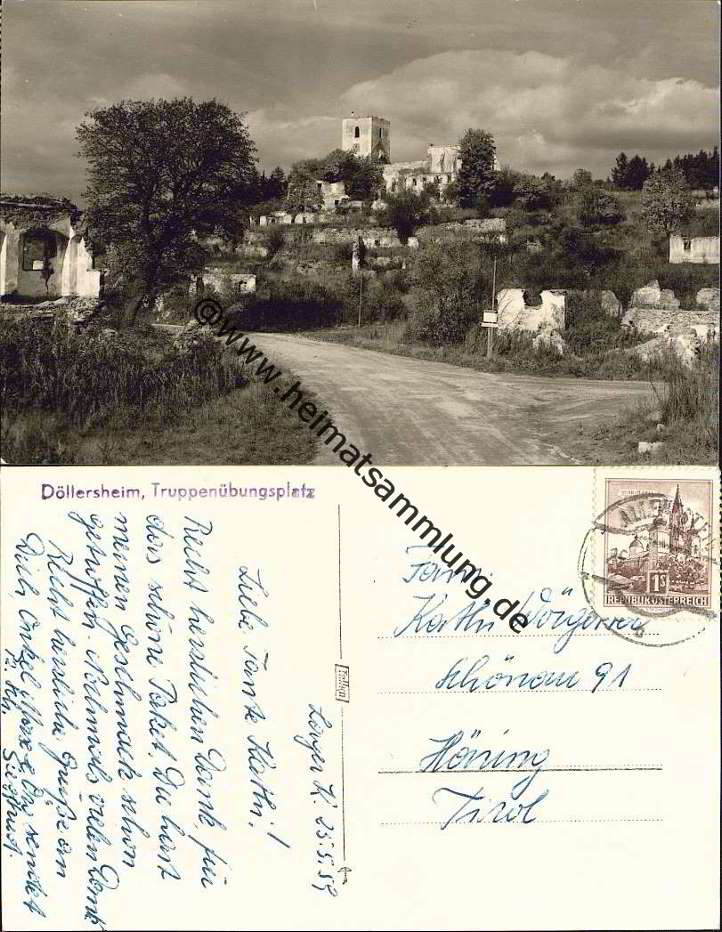 © www.heimatsammlung.de
Döllersheim, Truppenübungsplatz
Liebe Tante Kathi!
Recht herzlichen Dank für
das schöne Paket, Du hast
meinen Geschmack schon
getroffen. Nochmals vielen Dank
Recht herzliche Grüße an
Dich, Onkel
sendet
Langer K. 25.5.59
Frau
Kathi
Schönau 91
Häring
Tirol
1S
REPUBLIK ÖSTERREICH